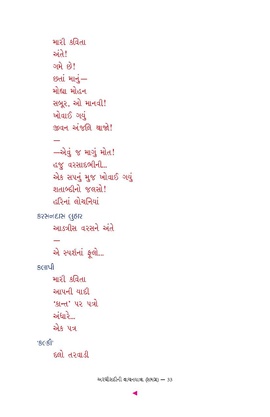 મારી કવિતા
અંતે!
ગમે છે!
છતાં માનું—
મોંઘા મોહન
સબૂર, ઓ માનવી!
ખોવાઈ ગયું
જીવન અંજલિ થાજો!
—
—એવું જ માગું મોત!
હજુ વરસાદભીની...
એક સપનું મુજ ખોવાઈ ગયું
શતાબ્દીનો જલસો!
હરિનાં લોચનિયાં
કરસનદાસ લુહાર
આડત્રીસ વરસને અંતે
—
એ સ્પર્શનાં ફૂલો...
કલાપી
મારી કવિતા
આપની યાદી
'કાન્ત' પર પત્રો
અંધારે...
એક પત્ર
'કલ્કી'
દલો તરવાડી
અરધી સદીની વાચનયાત્રા (સમગ્ર) — 33